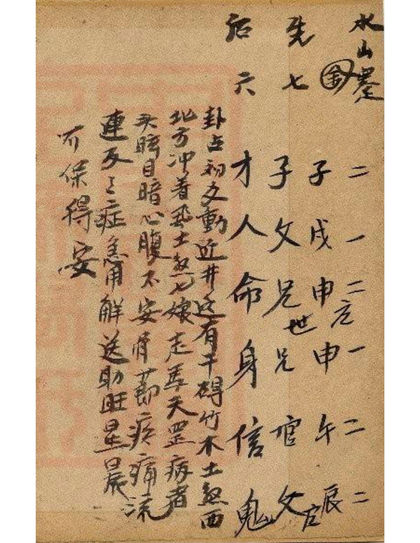 水山蹇 二 一 二 一 二 二
金 子 戌 申 申 午 辰
先七 子 父 兄 世 兄 官 父
后六 才 人 命 身 信 鬼
卦占初爻動近井边有干碍竹木土煞西
北方冲着土煞七娘走馬天罡病者
头晦目暗心腹不安骨节疼痛流
連反之症急用解送助旺星晨
可保得安